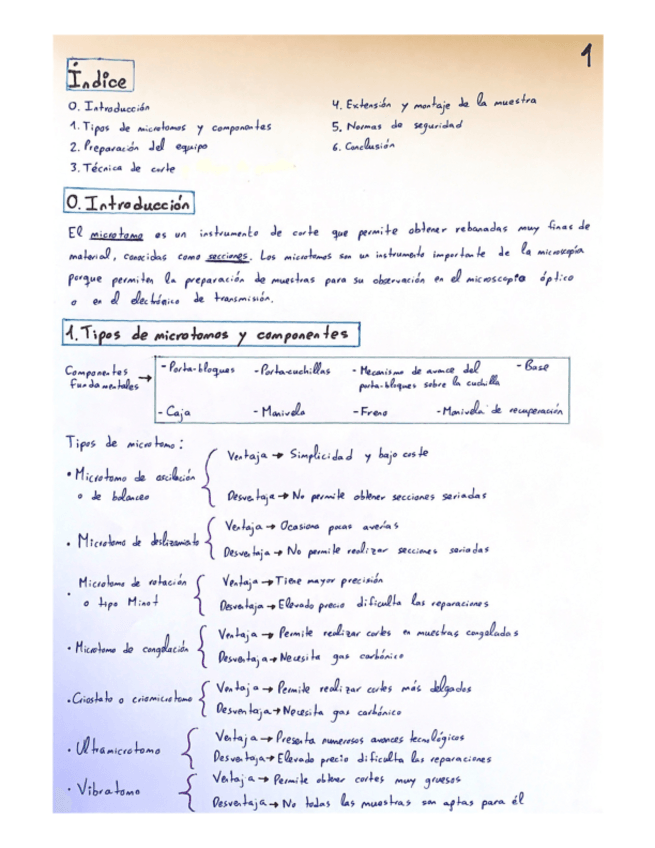 1
Índice
0. Introducción
1. Tipos de microtomos y componentes
2. Preparación del equipo
3. Técnica de corte
4. Extensión y montaje de la muestra
5. Normas de seguridad
6. Conclusión
0. Introducción
El microtomo es un instrumento de corte que permite obtener rebanadas muy finas de
material, conocidas como secciones. Los microtomos son un instrumento importante de la microscopía
porque permiten la preparación de muestras para su observación en el microscopio óptico
o en el electrónico de transmisión.
1. Tipos de microtomos y componentes
Componentes fundamentales →
- Porta-bloques - Porta-cuchillas - Mecanismo de avance del porta-bloques sobre la cuchilla - Base
- Caja - Manivela - Freno - Manivela de recuperación
Tipos de microtomo:
• Microtomo de oscilación o de balanceo
Ventaja → Simplicidad y bajo coste
Desventaja → No permite obtener secciones seriadas
• Microtomo de deslizamiento
Ventaja → Ocasiona pocas averías
Desventaja → No permite realizar secciones seriadas
• Microtomo de rotación o tipo Minot
Ventaja → Tiene mayor precisión
Desventaja → Elevado precio dificulta las reparaciones
• Microtomo de congelación
Ventaja → Permite realizar cortes en muestras congeladas
Desventaja → Necesita gas carbónico
• Criostato o criomicrotomo
Ventaja → Permite realizar cortes más delgados
Desventaja → Necesita gas carbónico
• Ultramicrotomo
Ventaja → Presenta numerosos avances tecnológicos
Desventaja → Elevado precio dificulta las reparaciones
• Vibratomo
Ventaja → Permite obtener cortes muy gruesos
Desventaja → No todas las muestras son aptas para él